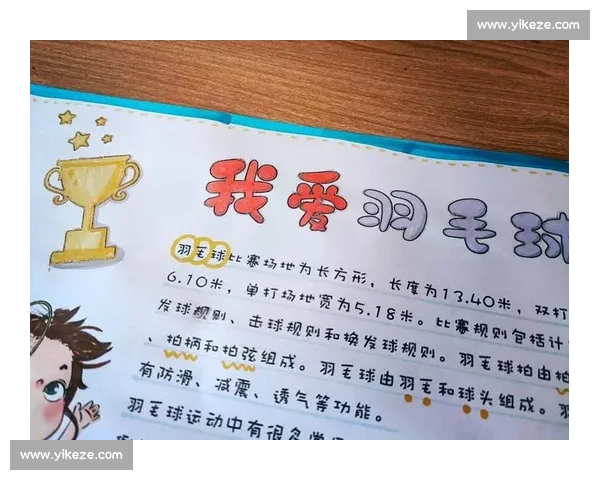 www.yikeze.com
我爱羽毛球
羽毛球比赛场地为长方形，长度为13.40米，双打
6.10米，单打场地宽为5.18米。比赛规则包括计
发球规则、击球规则和换发球规则。羽毛球拍由拍
、拍柄和拍弦组成。羽毛球由羽毛和球头组成。羽
有防滑、减震、透气等功能。
羽毛球运动中有很多
www.yikeze.com